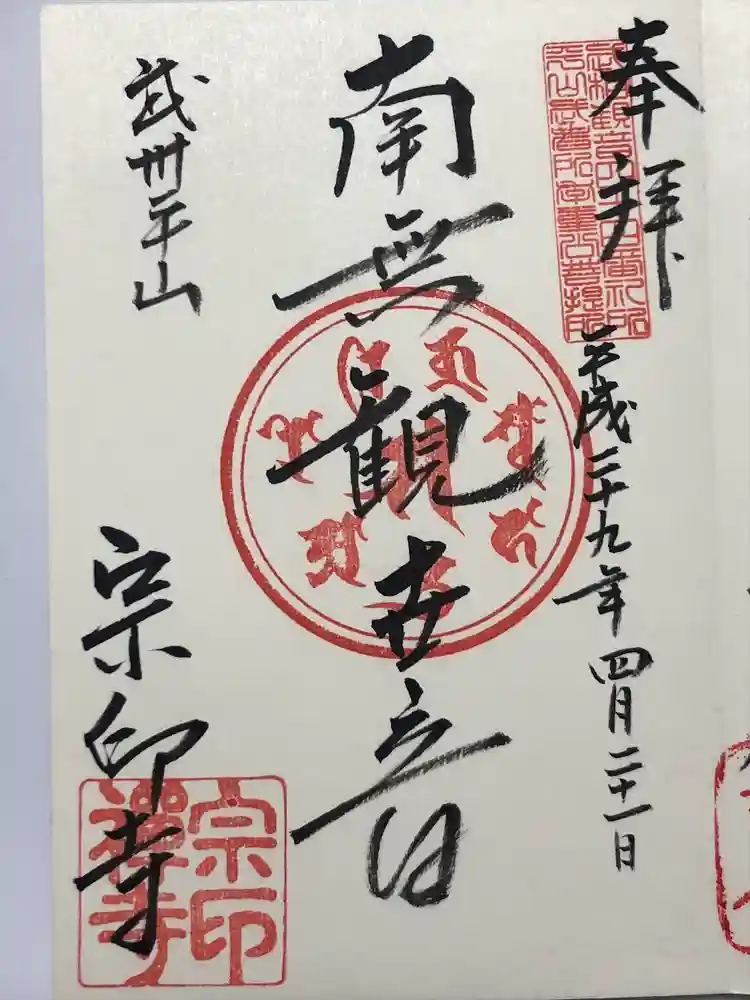 奉拝
平成二十九年四月二十一日
南無観世音
武州平山
宗印寺
宗印
禅寺